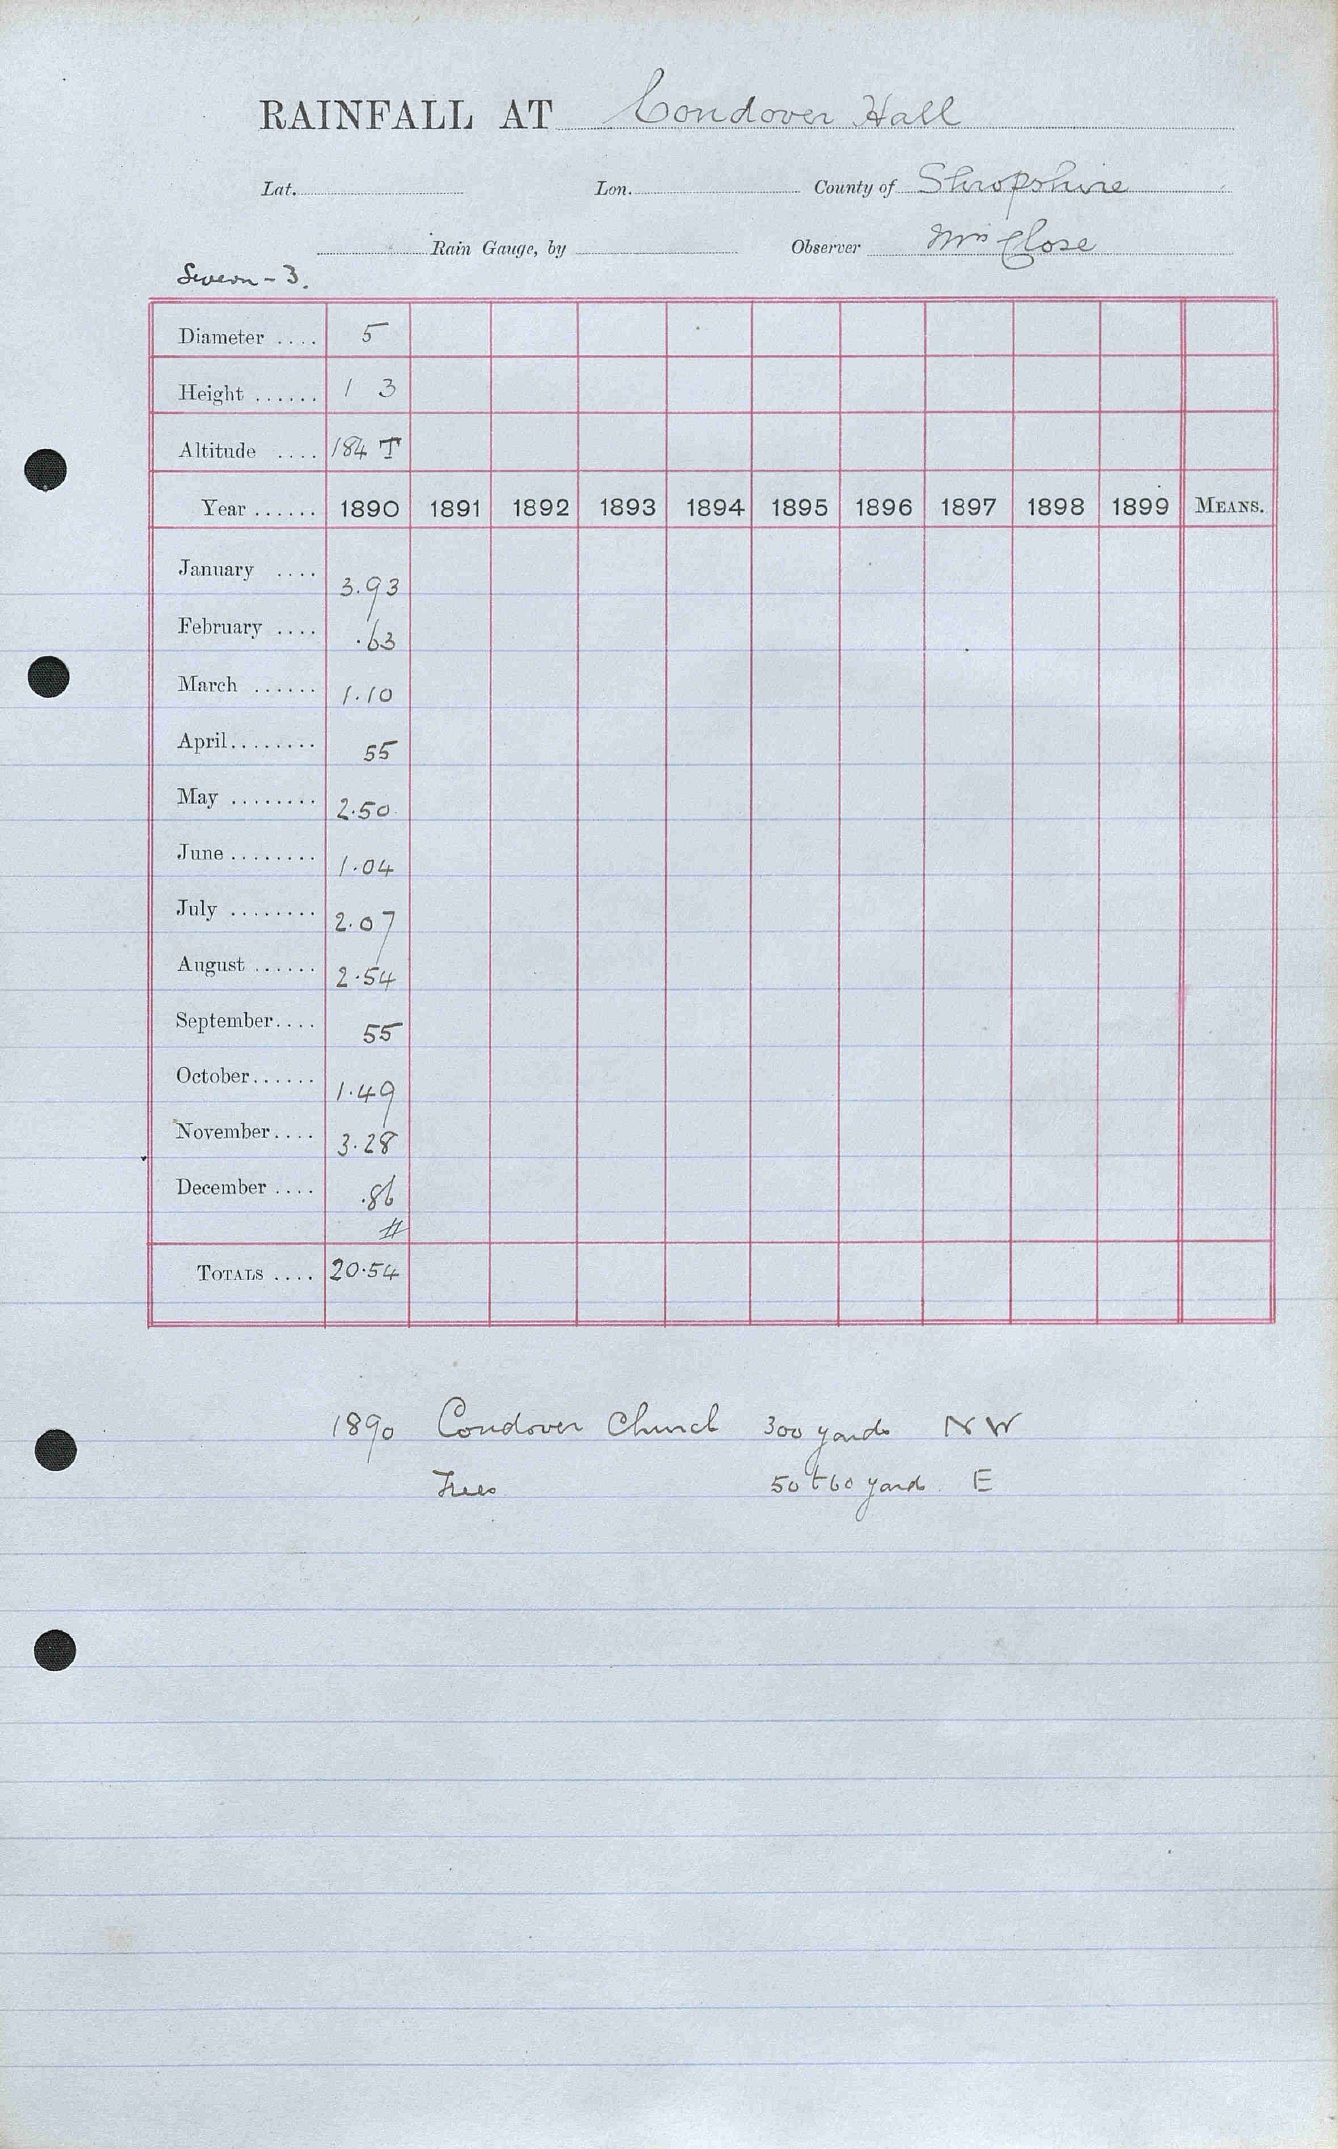 RAINFALL AT Condover Hall
Lat. Lon. County of Shropshire
Rain Gauge, by Observer Mrs Close
Severn - 3.
Diameter .... 5
Height ...... 1 3
Altitude .... 184 T
Year ...... 1890 1891 1892 1893 1894 1895 1896 1897 1898 1899 MEANS.
January .... 3.93
February .... .63
March ...... 1.10
April........ 55
May ........ 2.50
June ........ 1.04
July ........ 2.07
August ...... 2.54
September.... 55
October...... 1.49
November.... 3.28
December .... .86
#
TOTALS .... 20.54
1890 Condover Church 300 yards NW
Trees 50 to 60 yards E